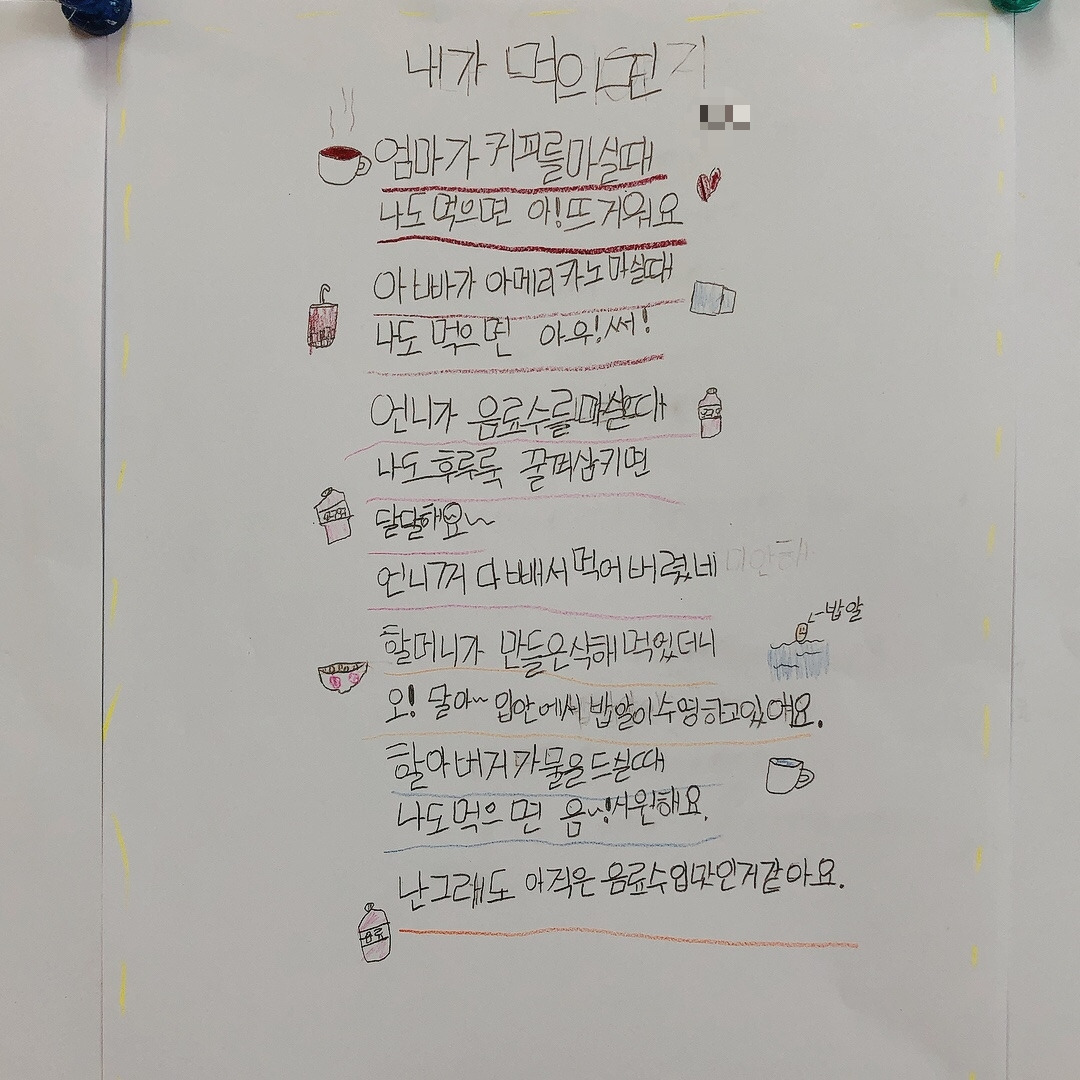 내가 먹으면
엄마가 커피를마실때
나도먹으면 아!뜨거워요
아빠가 아메리카노마실때
나도 먹으면 아우!써!
언니가 음료수를마실때
나도후루룩 꿀꺽삼키면
달달해요~
언니꺼 다 빼서먹어버렸네 미안해
밥알
할머니가 만들은식해먹었더니
오! 달아~ 입안에서 밥알이수영하고있어요.
할아버지가물을드실때
나도먹으면 음~!시원해요.
난그래도 아직은 음료수입맛인거같아요.
음료